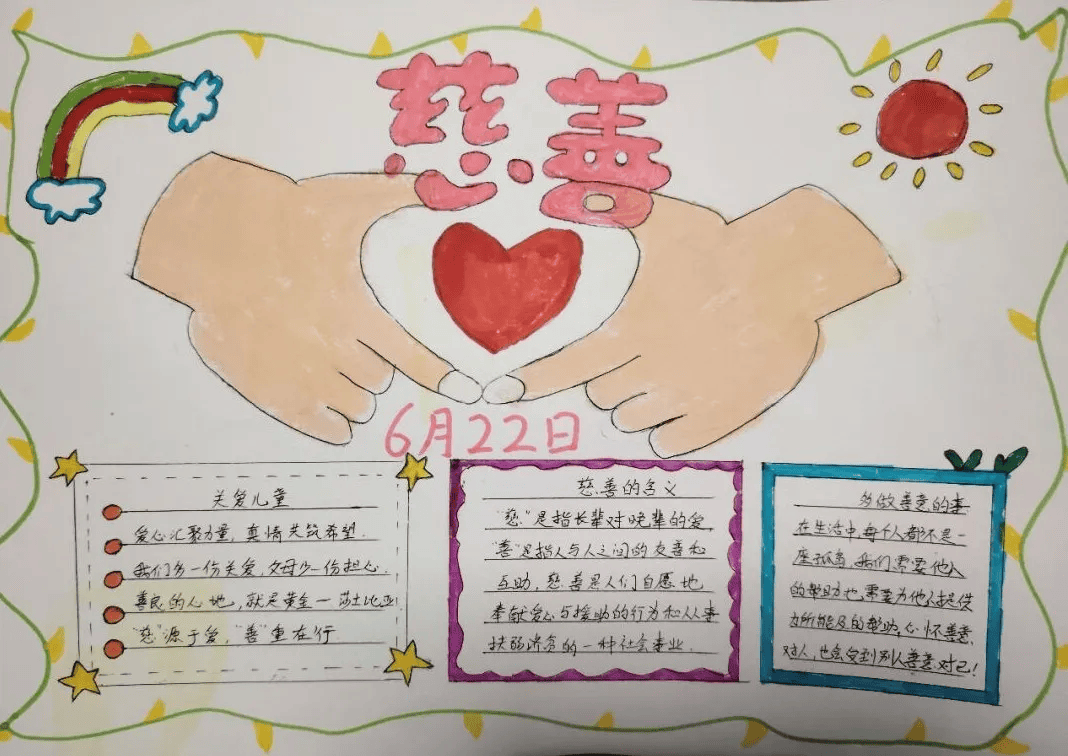 慈善
6月22日
关爱儿童
爱心汇聚力量，真情共筑希望．
我们多一份关爱，父母少一份担心．
善良的心地，就是黄金－莎士比亚！
"慈"源于爱，"善"重在行
慈善的含义
"慈"是指长辈对晚辈的爱，
"善"是指人与人之间的友善和
互助，慈善是人们自愿地
奉献爱心与援助的行为和从事
扶弱济贫的一种社会事业．
多做善意的事
在生活中，每个人都不是一
座孤岛，我们需要他人
的帮助也需要为他人提供
力所能及的帮助，心怀善意，
对人，也会受到别人善意对己！